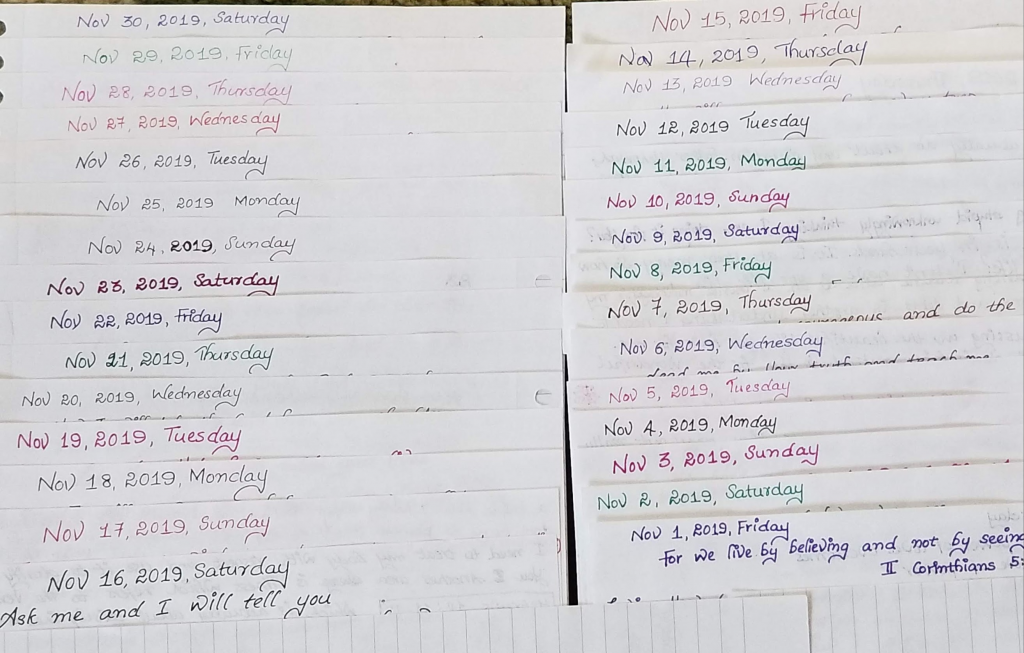 Nov 30, 2019, Saturday
Nov 29, 2019, Friday
Nov 28, 2019, Thursday
Nov 27, 2019, Wednesday
Nov 26, 2019, Tuesday
Nov 25, 2019 Monday
Nov 24, 2019, Sunday
Nov 23, 2019, Saturday
Nov 22, 2019, Friday
Nov 21, 2019, Thursday
Nov 20, 2019, Wednesday
Nov 19, 2019, Tuesday
Nov 18, 2019, Monday
Nov 17, 2019, Sunday
Nov 16, 2019, Saturday
Ask me and I will tell you
Nov 15, 2019, Friday
Nov 14, 2019, Thursday
Nov 13, 2019 Wednesday
Nov 12, 2019 Tuesday
Nov 11, 2019, Monday
Nov 10, 2019, Sunday
Nov. 9, 2019, Saturday
Nov 8, 2019, Friday
Nov 7, 2019, Thursday
and do the
Nov 6, 2019, Wednesday
Nov 5, 2019, Tuesday
Nov 4, 2019, Monday
Nov 3, 2019, Sunday
Nov 2, 2019, Saturday
Nov 1, 2019, Friday
For we live by believing and not by seeing
II Corinthians 5: